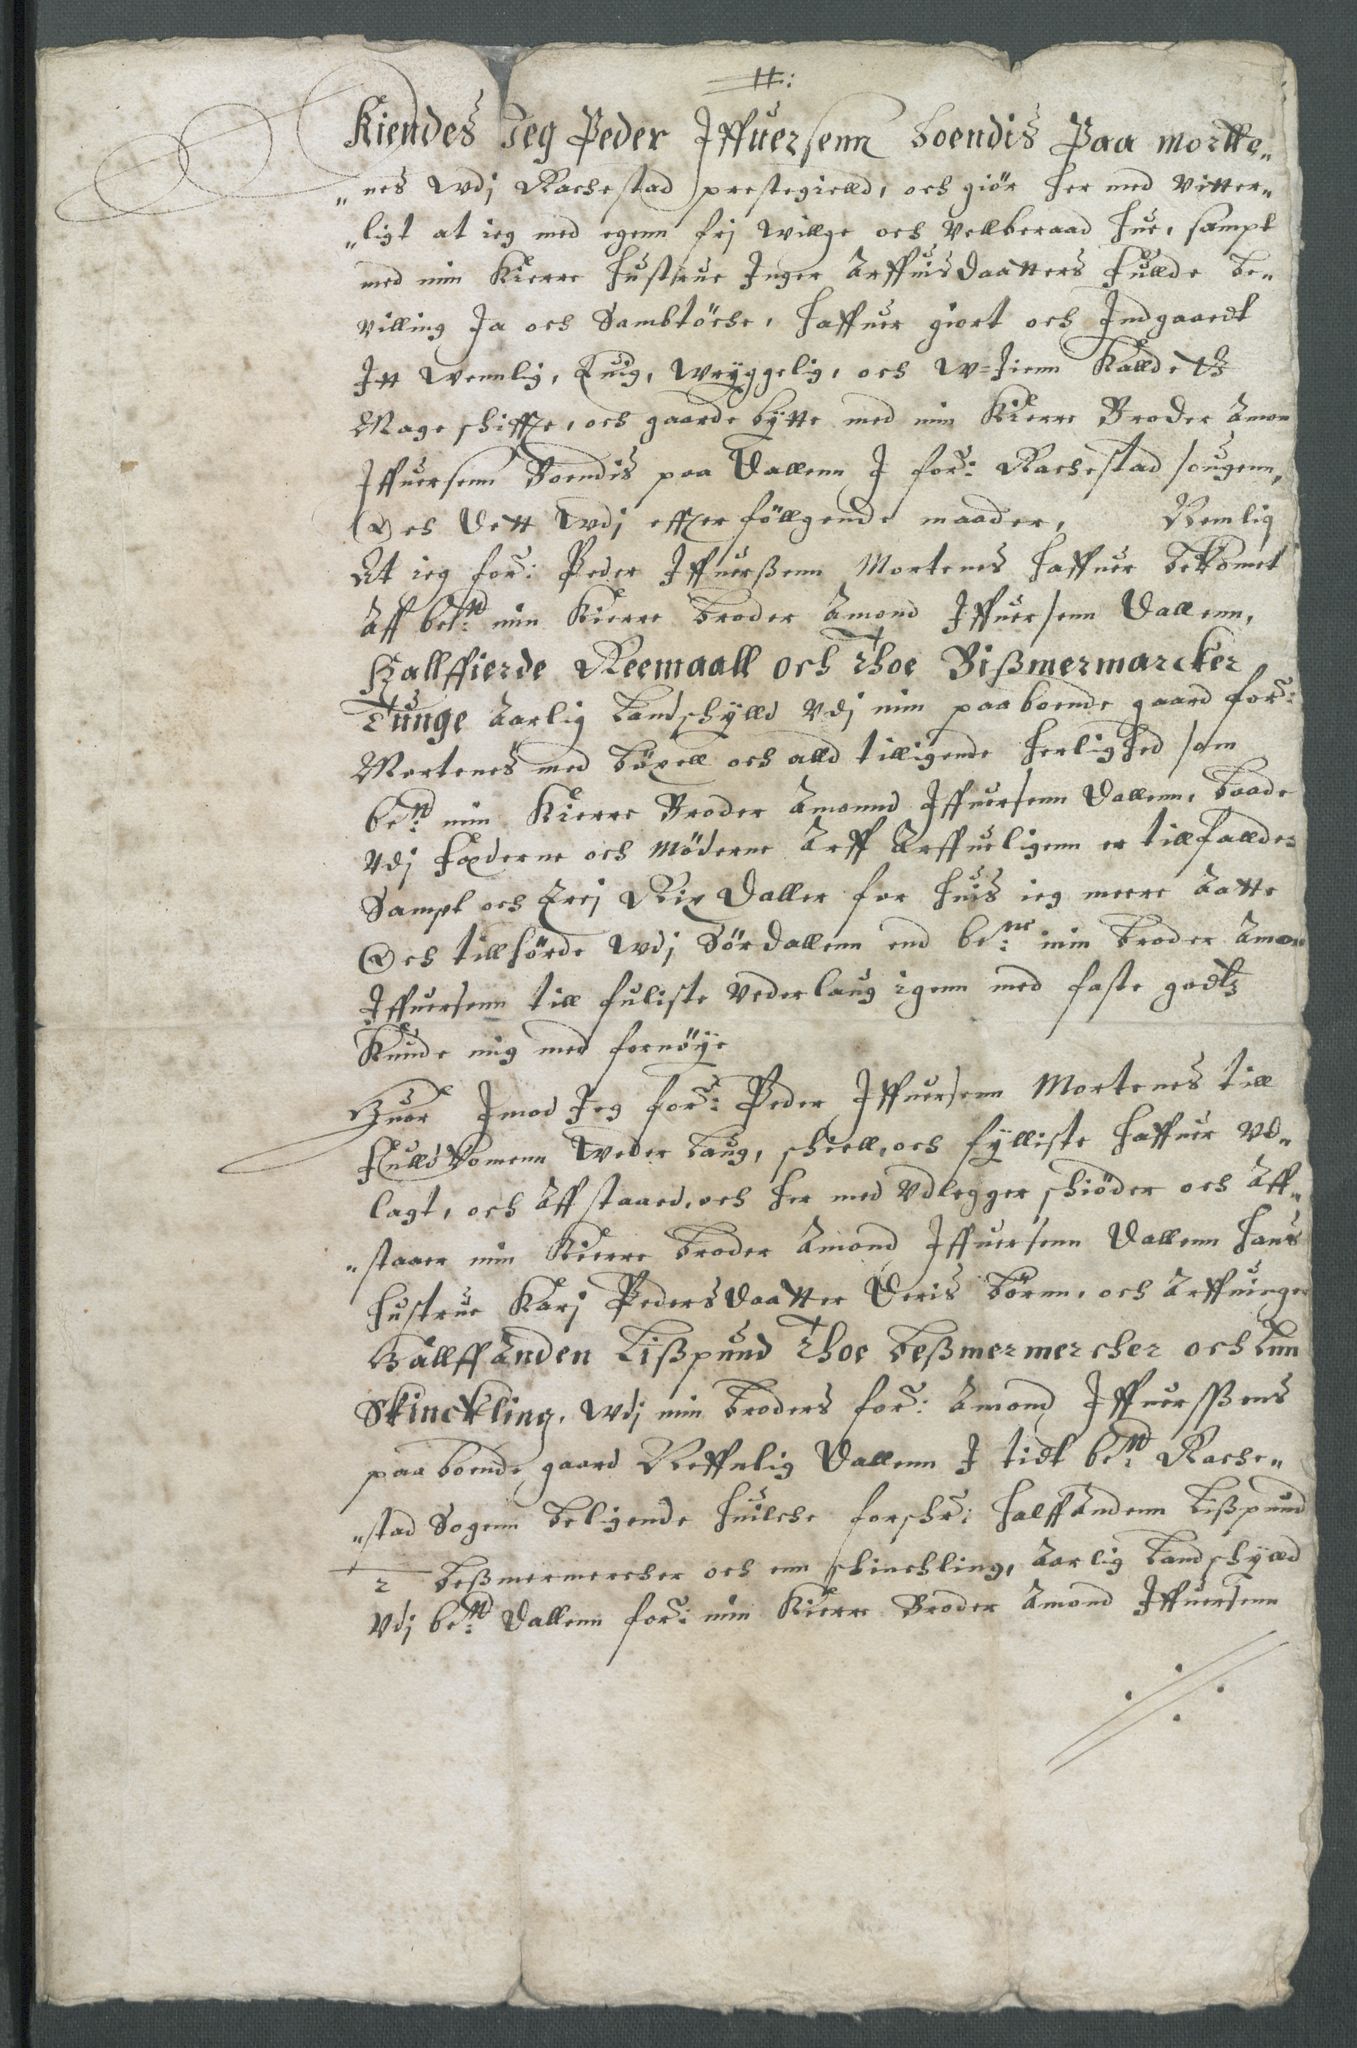 #:
Kiendes Jeg Peder Iffuersenn boendis Paa Mortte„
„nes Udj Rachestad prestegielld, och giör her med vitter„
„ligt at ieg med egenn frj Willge och Vellberaad hue, sampt
med min Kierre hustrue Inger Arffuisdaatters Fullde be„
villing Ja och Sambtöche, haffuer giort och Indgaaedt
Itt wennlig, Euig, Wryggelig, och W=Jienn Kalldets
Mageschiffte, och gaarde bytte med min Kierre Broder Amon
Iffuersenn Boendis paa Dallenn J for: Rachestad sougenn,
Och Dett Udj effter föllgende maader, Nemlig
At ieg for: Peder Iffuerßenn Mortenes haffuer bekomet
Aff be:nd min Kierre broder Amond Iffuersenn Dallenn,
Hallffierde Reemaall och Thoe Bißmermarcker
Tunge Aarlig Landschylld Udj min paaboende gaard for:
Mortenes med böxell och alld tilligende herlighed som
be:nd min Kierre Broder Amonnd Iffuersenn Dallenn, baade
Udj Fæderne och Möderne Arff Arffueligenn er tillfallden
Sampt och Trej Rix Daller for huis ieg meere Aatte
Och tillhörde Udj Sördallenn end be:ne min broder Amon
Iffuersenn till fuliste Vederlaug igenn med faste godts
Kunde mig med fornöye
Huor Imod Jeg for: Peder Iffuersenn Mortenes till
Fulldkomenn Weder Laug, schiell, och fylliste haffuer Ud„
lagt, och Aff staaed, och her med Udlegger schiöder och Aff„
„staaer min Kierre broder Amond Iffuersenn Dallenn hans
hustrue Karj Pedersdaatter Deris börnn, och Arffuinger
Hallffanden Lißpund Thoe beßmermercher och Enn
Skinckling, Udj min broders for: Amond Iffuersßens
paaboende gaard Neffnlig Dallenn J tidt be:nd Rache„
„stad Sogenn beligende huilche forschr: halffAndenn Lißpund
2 beßmermercher och enn schinchling, Aarlig Landschyld
Udj be:nd Dallenn for: min Kierre Broder Amond Iffuersenn